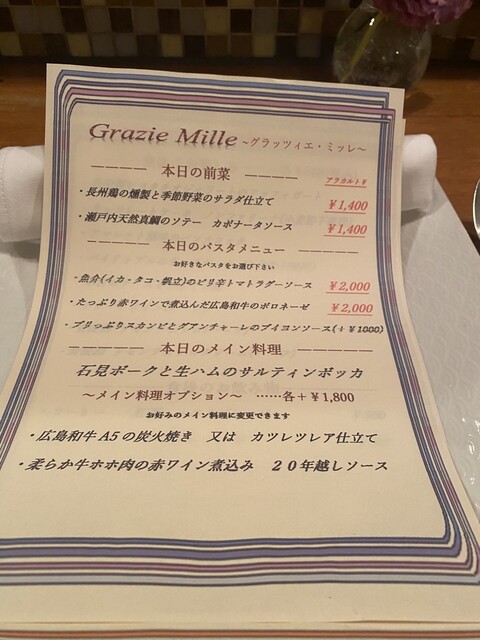 Grazie Mille ~グラッツィエ・ミッレ~
ーーーー 本日の前菜 ーーーー アラカルト¥
・長州鶏の燻製と季節野菜のサラダ仕立て ¥1,400
・瀬戸内天然真鯛のソテー カポナータソース ¥1,400
ーーーーー 本日のパスタメニュー ーーーーー
お好きなパスタをお選び下さい
・魚介(イカ・タコ・帆立)のピリ辛トマトラグーソース ¥2,000
・たっぷり赤ワインで煮込んだ広島和牛のボロネーゼ ¥2,000
・プリっぷりスカンピとグアンチャーレのブイヨンソース(+¥1000)
ーーーーー 本日のメイン料理 ーーーーー
石見ポークと生ハムのサルティンボッカ
～メイン料理オプション～ ……各+¥1,800
お好みのメイン料理に変更できます
・広島和牛A5の炭火焼き 又は カツレツレア仕立て
・柔らか牛ホホ肉の赤ワイン煮込み 20年越しソース